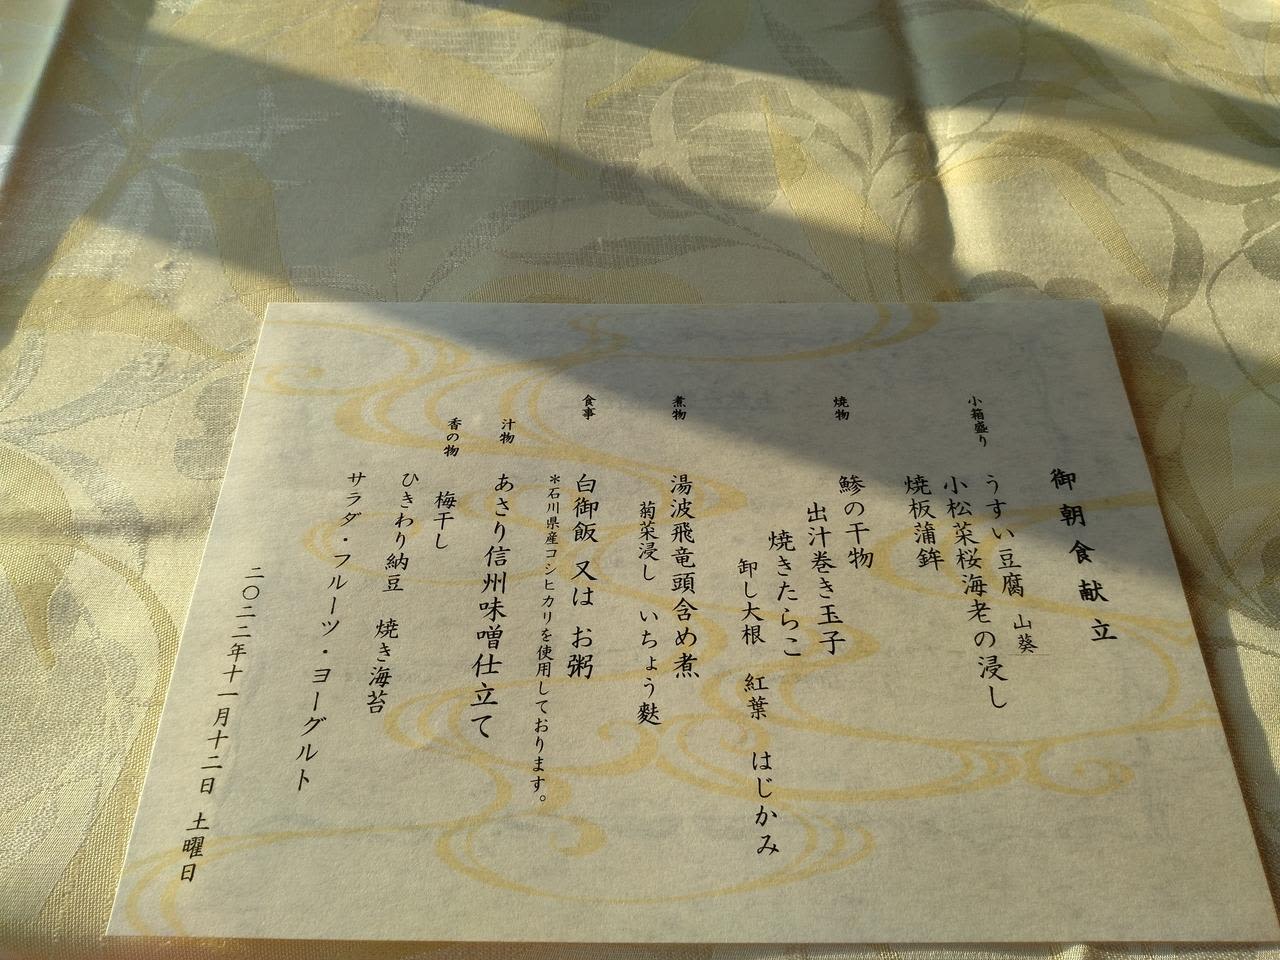 御朝食献立
小箱盛り
うすい豆腐 山葵
小松菜桜海老の浸し
焼板蒲鉾
焼物
鯵の干物
出汁巻き玉子
焼きたらこ
卸し大根 紅葉 はじかみ
煮物
湯波飛竜頭含め煮
菊菜浸し いちょう麩
食事
白御飯 又は お粥
*石川県産コシヒカリを使用しております。
汁物
あさり信州味噌仕立て
香の物
梅干し
ひきわり納豆 焼き海苔
サラダ・フルーツ・ヨーグルト
二〇二二年十一月十二日 土曜日